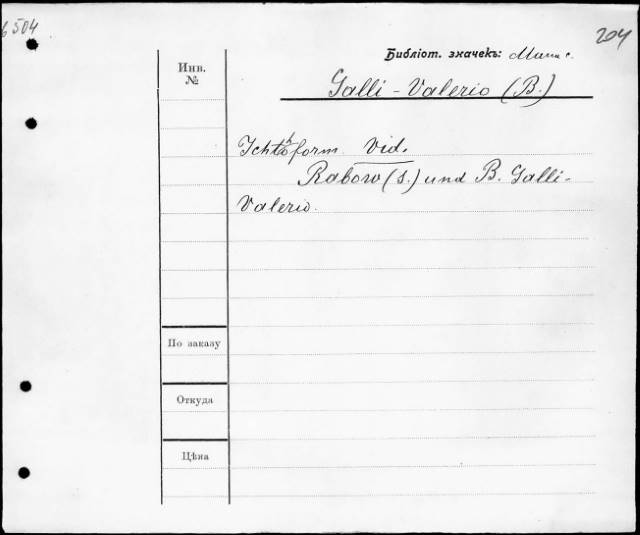 6504
204
Библіот. значекъ:
Инв.
№
Galli-Valerio (B.)
Ichthoform. Vid.
Rabow (S.) und B. Galli-
Valerio.
По заказу
Откуда
Цѣна